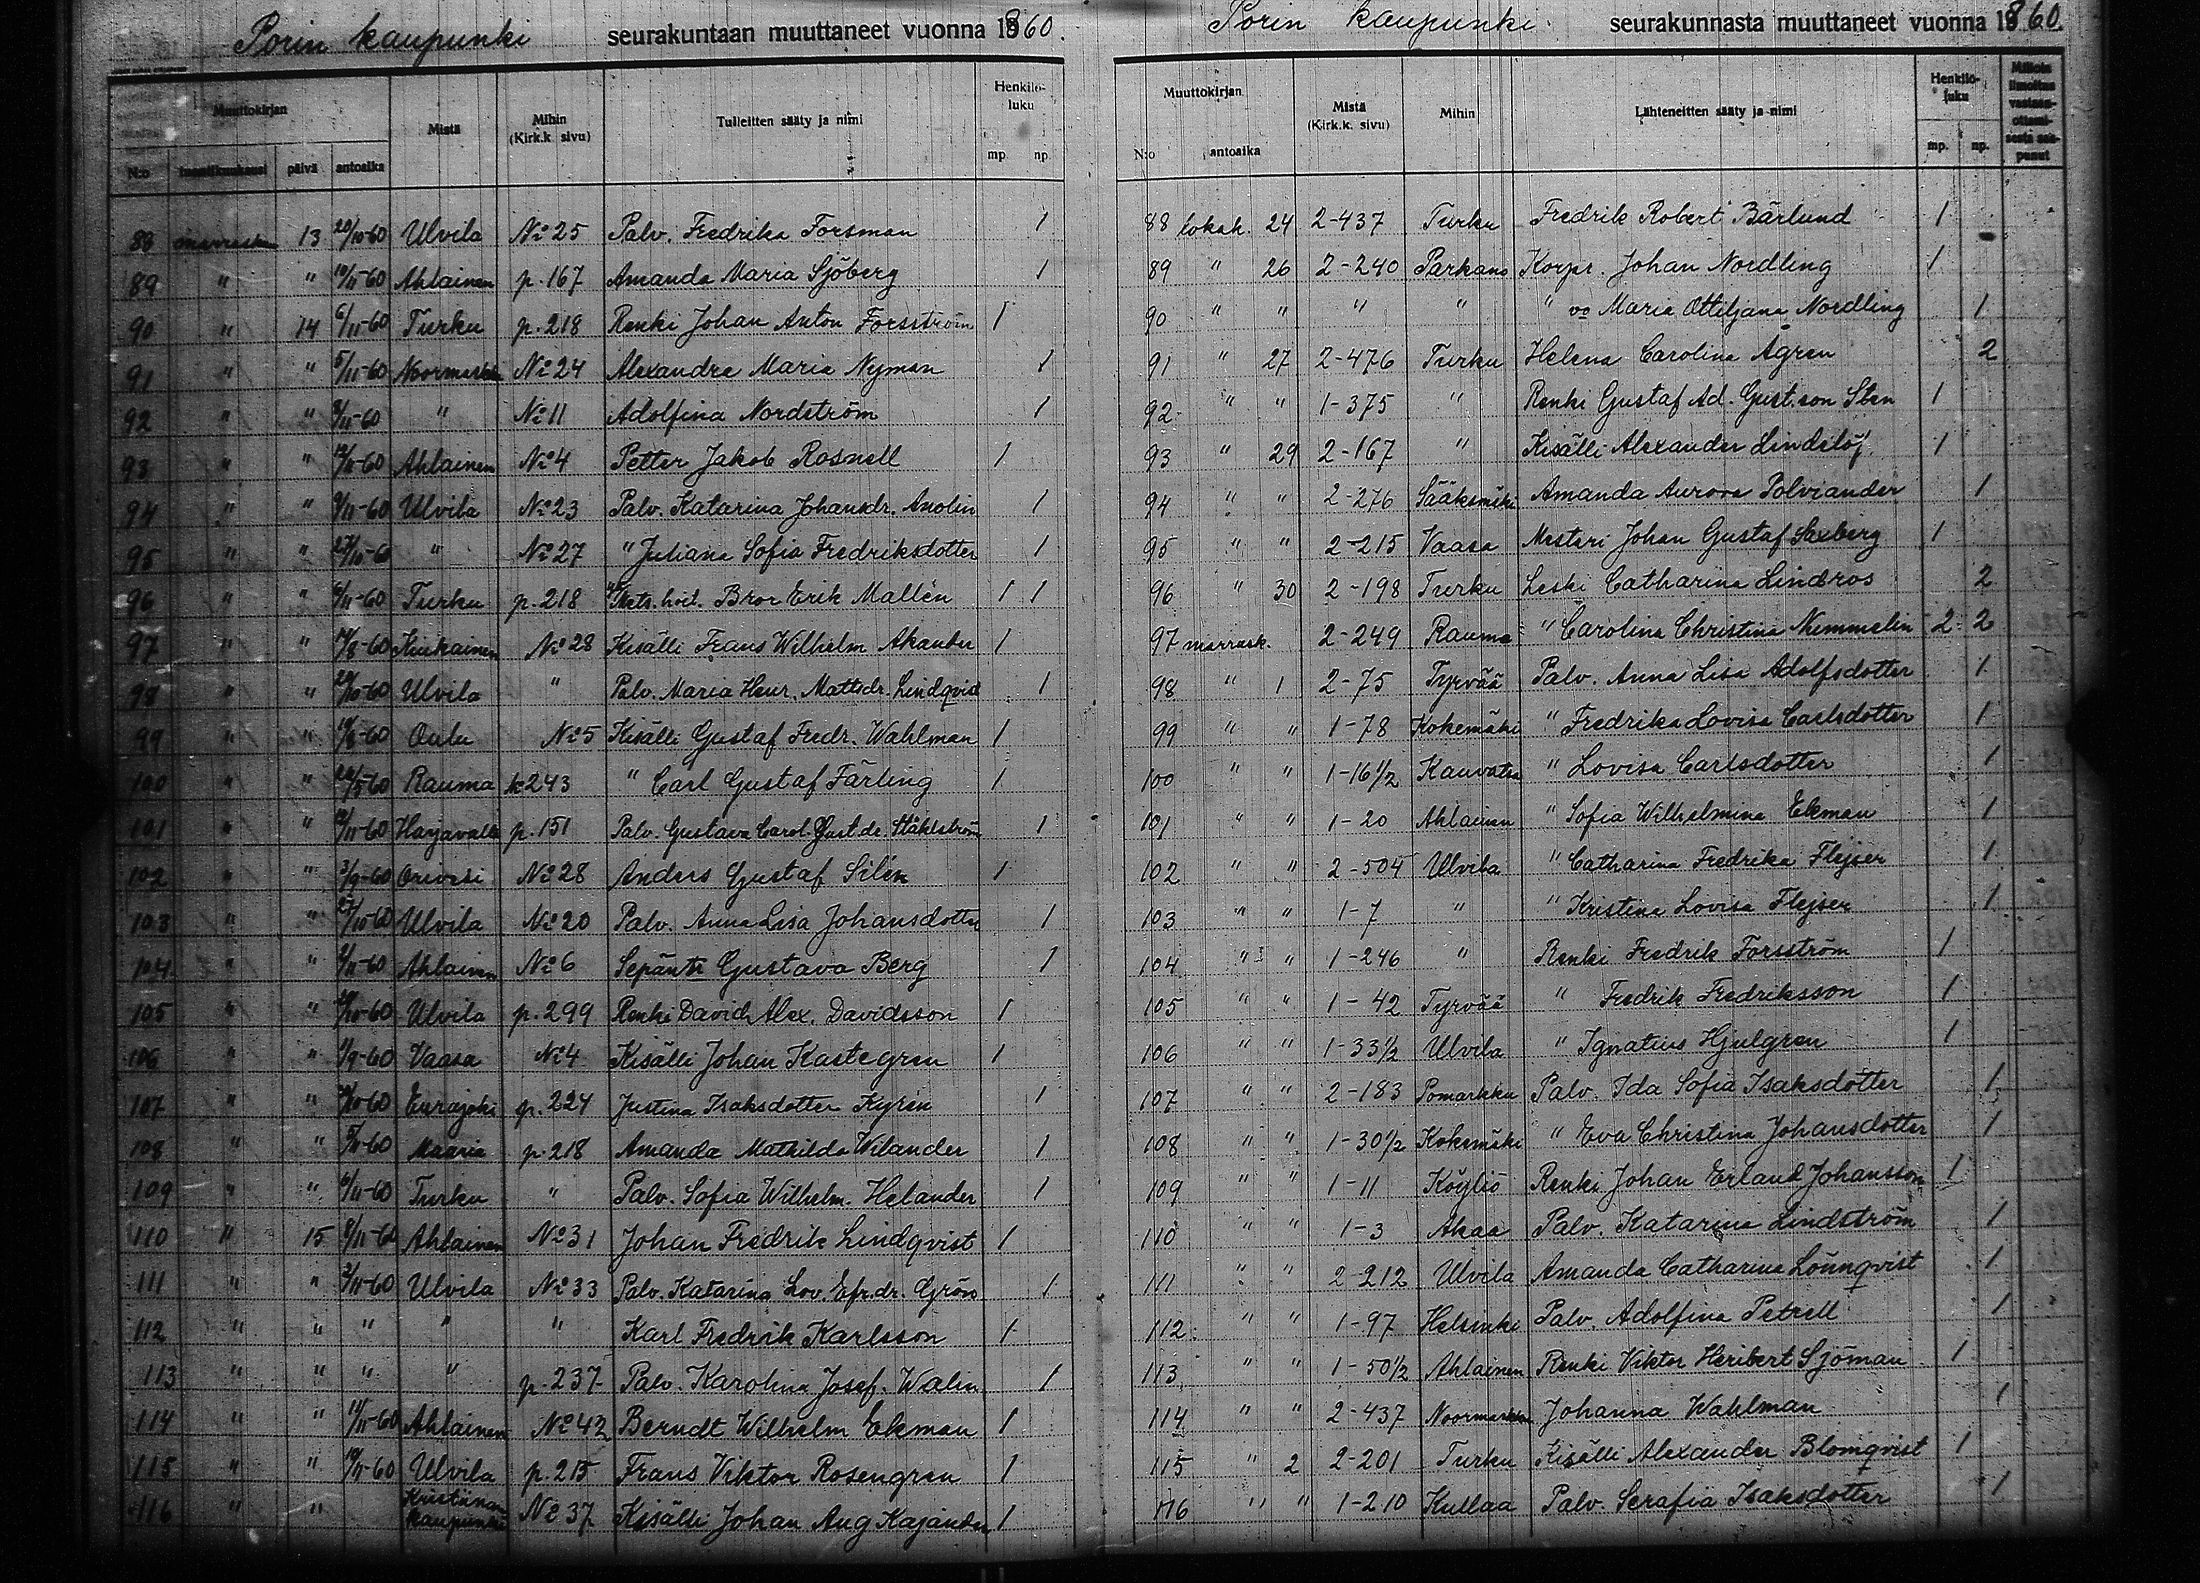 Porin kaupunki seurakuntaan muuttaneet vuonna 1860.
Muuttokirjan Mistä Mihin (Kirk.k. sivu) Tulleitten sääty ja nimi Henkilöluku
N:o päivä antoaika mp. np.
88 marrask. 13 20/10-60 Ulvila No 25 Palv. Fredrika Forsman 1
89 " " 10/11-60 Ahlainen p. 167 Amanda Maria Sjöberg 1
90 " 14 6/11-60 Turku p. 218 Renki Johan Anton Forsström 1
91 " " 5/11-60 Noormarkku No 24 Alexandra Maria Nyman 1
92 " " /11-60 " No 11 Adolfina Nordström 1
93 " " 12/11-60 Ahlainen No 4 Petter Jakob Rosnell 1
94 " " 9/11-60 Ulvila No 23 Palv. Katarina Johansdr. Anolin 1
95 " " 27/10-60 " No 27 " Juliana Sofia Fredriksdotter 1
96 " " 6/11-60 Turku p. 218 Bror Erik Mallén 1 1
97 " " 14/8-60 Kiukainen No 28 Kisälli Frans Wilhelm Akander 1
98 " " /10-60 Ulvila " Palv. Maria Henr. Mattsdr. Lindqvist 1
99 " " -60 Oulu No 5 Kisälli Gustaf Fredr. Wahlman 1
100 " " -60 Rauma 243 " Carl Gustaf Färling 1
101 " " 12/11-60 Harjavalta p. 151 Palv. Gustava Carol. Gust.dr. Ståhlström 1
102 " " 3/9-60 Orivesi No 28 Anders Gustaf Silén 1
103 " " 27/10-60 Ulvila No 20 Palv. Anna Lisa Johansdotter 1
104 " " /11-60 Ahlainen No 6 Gustava Berg 1
105 " " /10-60 Ulvila p. 299 Renki David Alex. Davidsson 1
106 " " /9-60 Vaasa No 4 Kisälli Johan Kastegren 1
107 " " /10-60 Eurajoki p. 224 Justina Isaksdotter Kyrén 1
108 " " 5/11-60 Maaria p. 218 Amanda Mathilda Wilander 1
109 " " 6/11-60 Turku " Palv. Sofia Wilhelm. Helander 1
110 " 15 8/11-60 Ahlainen No 31 Johan Fredrik Lindqvist 1
111 " " 2/11-60 Ulvila No 33 Palv. Katarina Lov. Efr.dr. Grön 1
112 " " " " " Karl Fredrik Karlsson 1
113 " " " " p. 237 Palv. Karolina Josef. Walin 1
114 " " 11/11-60 Ahlainen No 42 Berndt Wilhelm Ekman 1
115 " " 10/11-60 Ulvila p. 215 Frans Viktor Rosengren 1
116 " " Kristiinankaupunki No 37 Kisälli Johan Aug Kajander 1
Porin kaupunki seurakunnasta muuttaneet vuonna 1860.
Muuttokirjan Mistä (Kirk.k. sivu) Mihin Lähteneitten sääty ja nimi Henkilöluku Milloin ilmoitus vastaanottamisesta saapunut
N:o antoaika mp. np.
88 lokak. 24 2-437 Turku Fredrik Robert Bärlund 1
89 " 26 2-240 Parkano Korpr. Johan Nordling 1
90 " " " " " vo Maria Ottiljana Nordling 1
91 " 27 2-476 Turku Helena Carolina Ågren 2
92 " " 1-375 " Renki Gustaf Ad. Gust.son Sten 1
93 " 29 2-167 " Kisälli Alexander Lindelöf 1
94 " " 2-276 Sääksmäki Amanda Aurora Polviander 1
95 " " 2-215 Vaasa Mestari Johan Gustaf Saxberg 1
96 " 30 2-198 Turku Leski Catharina Lindros 2
97 marrask. 2-249 Rauma " Carolina Christina Nummelin 2 2
98 " 1 2-75 Tyrvää Palv. Anna Lisa Adolfsdotter 1
99 " " 1-78 Kokemäki " Fredrika Lovisa Carlsdotter 1
100 " " 1-16 1/2 Kauvatsa " Lovisa Carlsdotter 1
101 " " 1-20 Ahlainen " Sofia Wilhelmina Ekman 1
102 " " 2-504 Ulvila " Catharina Fredrika Flejser 1
103 " " 1-7 " " Kristina Lovisa Flejser 1
104 " " 1-246 " Renki Fredrik Forsström 1
105 " " 1-42 Tyrvää " Fredrik Fredriksson 1
106 " " 1-33 1/2 Ulvila " Ignatius Hjulgren 1
107 " " 2-183 Pomarkku Palv. Ida Sofia Isaksdotter 1
108 " " 1-30 1/2 Kokemäki " Eva Christina Johansdotter 1
109 " " 1-11 Köyliö Renki Johan Erland Johansson 1
110 " " 1-3 Akaa Palv. Katarina Lindström 1
111 " " 2-212 Ulvila Amanda Catharina Lönnqvist 1
112 " " 1-97 Helsinki Palv. Adolfina Petrell 1
113 " " 1-50 1/2 Ahlainen Renki Viktor Heribert Sjöman 1
114 " " 2-437 Noormarkku Johanna Wahlman 1
115 " 2 2-201 Turku Kisälli Alexander Blomqvist 1
116 " " 1-210 Kullaa Palv. Serafia Isaksdotter 1